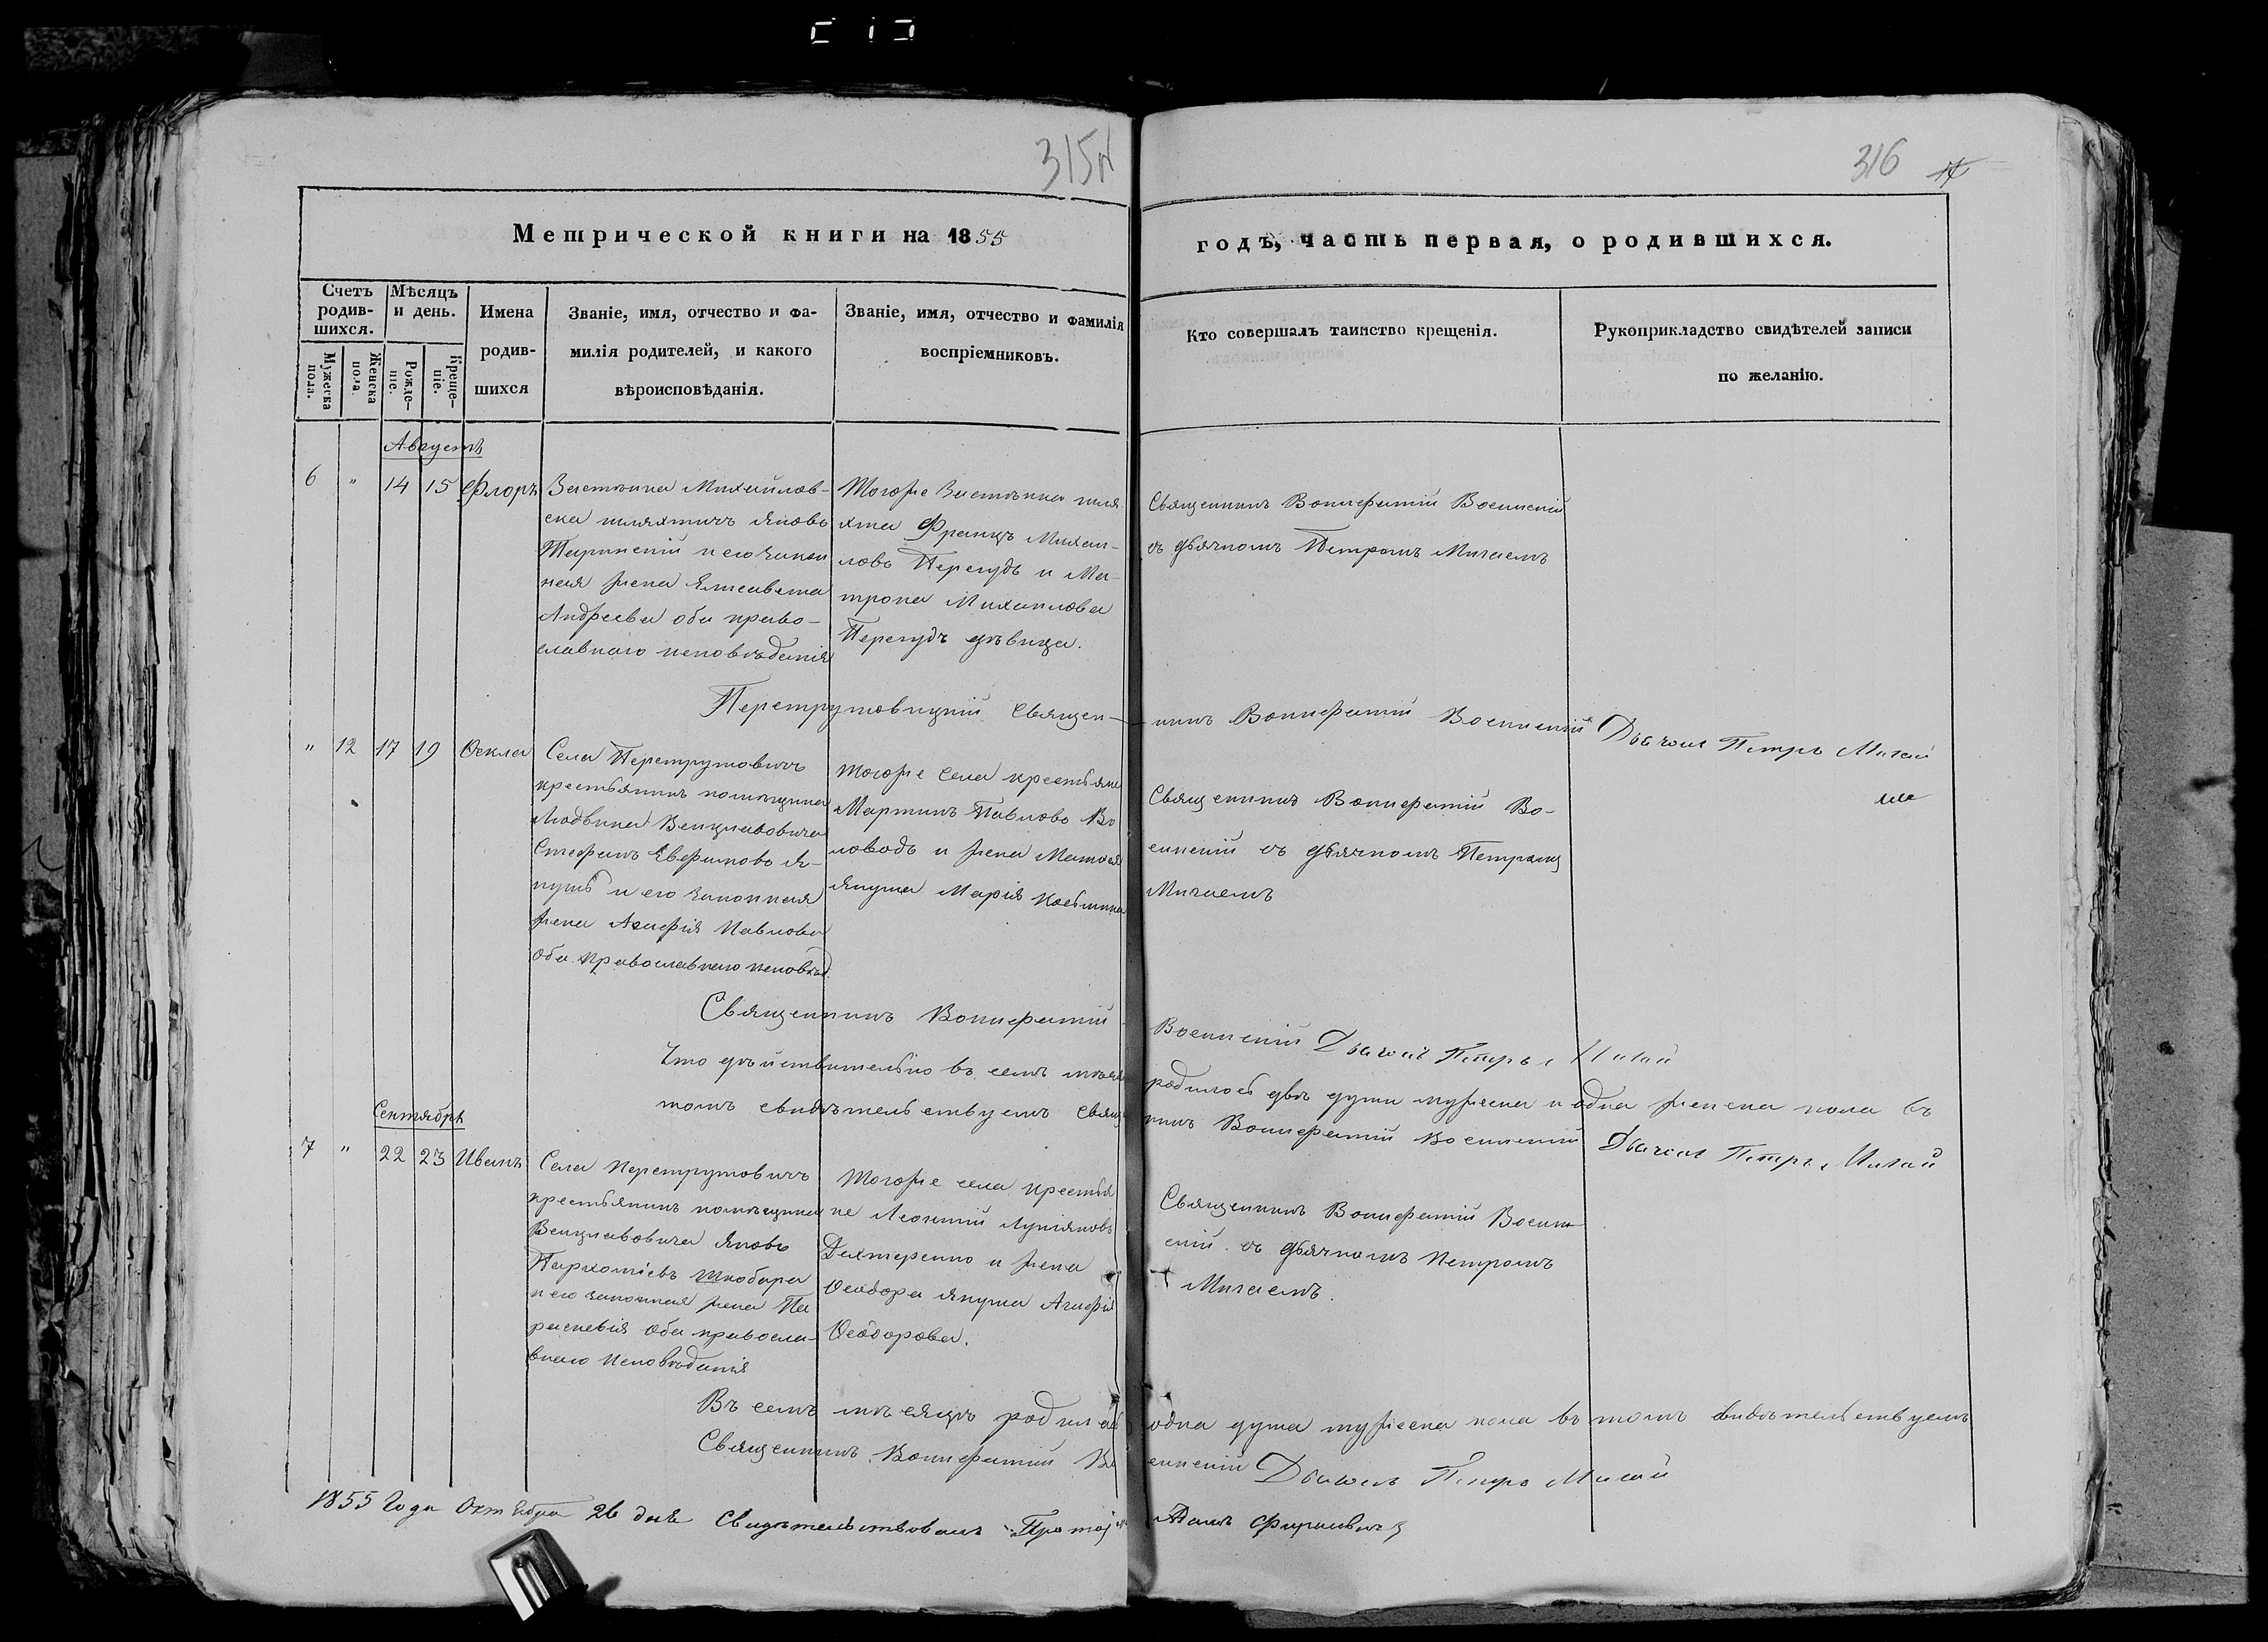 315
316
Метрической книги на 1855
годъ, часть первая, о родившихся.
Счетъ родив-шихся.
Мѣсяцъ и день.
Имена родив-шихся
Званіе, имя, отчество и фа-
милія родителей, и какого
вѣроисповѣданія.
Званіе, имя, отчество и фамилія
воспріемниковъ.
Кто совершалъ таинство крещенія.
Рукоприкладство свидѣтелей записи
по желанію.
Мужеска пола.
Женска пола.
Рожде-ніе.
Креще-ніе.
Августъ
6 " 14 15 Флоръ
Застѣнка Михайлов-
ска шляхтичъ Яковъ
и его закон
ная жена Елисавета
Андреева оба право-
славнаго исповѣданія
Тогоже Застѣнка шля
хта Францъ Михаи-
ловъ Перегудъ и Ма-
трона Михаилова
Перегудъ дѣвица.
Священникъ Вонифатій Воеинскій
съ дьячкомъ Петромъ Мигаемъ
Перетрутовицкій Священ-
никъ Вонифатій
Дьячокъ Петръ Мигай
" 12 17 19 Ѳекла
Села Перетрутовичъ
крестьянинъ помѣщика
Людвика Венцлавовича
Стефанъ Евфимовъ Я-
кушъ и его законная
жена Агафія Павлова
оба православнаго исповѣд.
Тогоже села крестьяне
Мартинъ Павловъ Во
ловодъ и жена Матѳея
Якуша Марія
Священникъ Вонифатій Во-
съ дьячкомъ Петромъ
Мигаемъ
Священникъ Вонифатій
Дьячокъ Петръ Мигай
Что дѣйствительно въ семъ мѣсяц
родилось двѣ души мужеска и одна женска пола въ
томъ свидѣтельствуемъ Свящ
никъ Вонифатій
Дьячокъ Петръ Мигай
Сентябрь
7 " 22 23 Иванъ
Села Перетрутовичъ
крестьянинъ помѣщика
Венцлавовича Яковъ
Пархоміевъ Шкобара
и его законная жена Па
раскевія оба правосла-
внаго исповѣданія
Тогоже села крестья
не Леонтій Лукіяновъ
Дехтеренко и жена
Ѳеодора Якуша Агафія
Ѳеодорова.
Священникъ Вонифатій
съ дьячкомъ Петромъ
Мигаемъ.
Въ семъ мѣсяцѣ родилась
одна душа мужеска пола въ томъ свидѣтельствуемъ
Священникъ Вонифатій
Дьячокъ Петръ Мигай
1855 Года Октября 26 дня Свидѣтельствовалъ